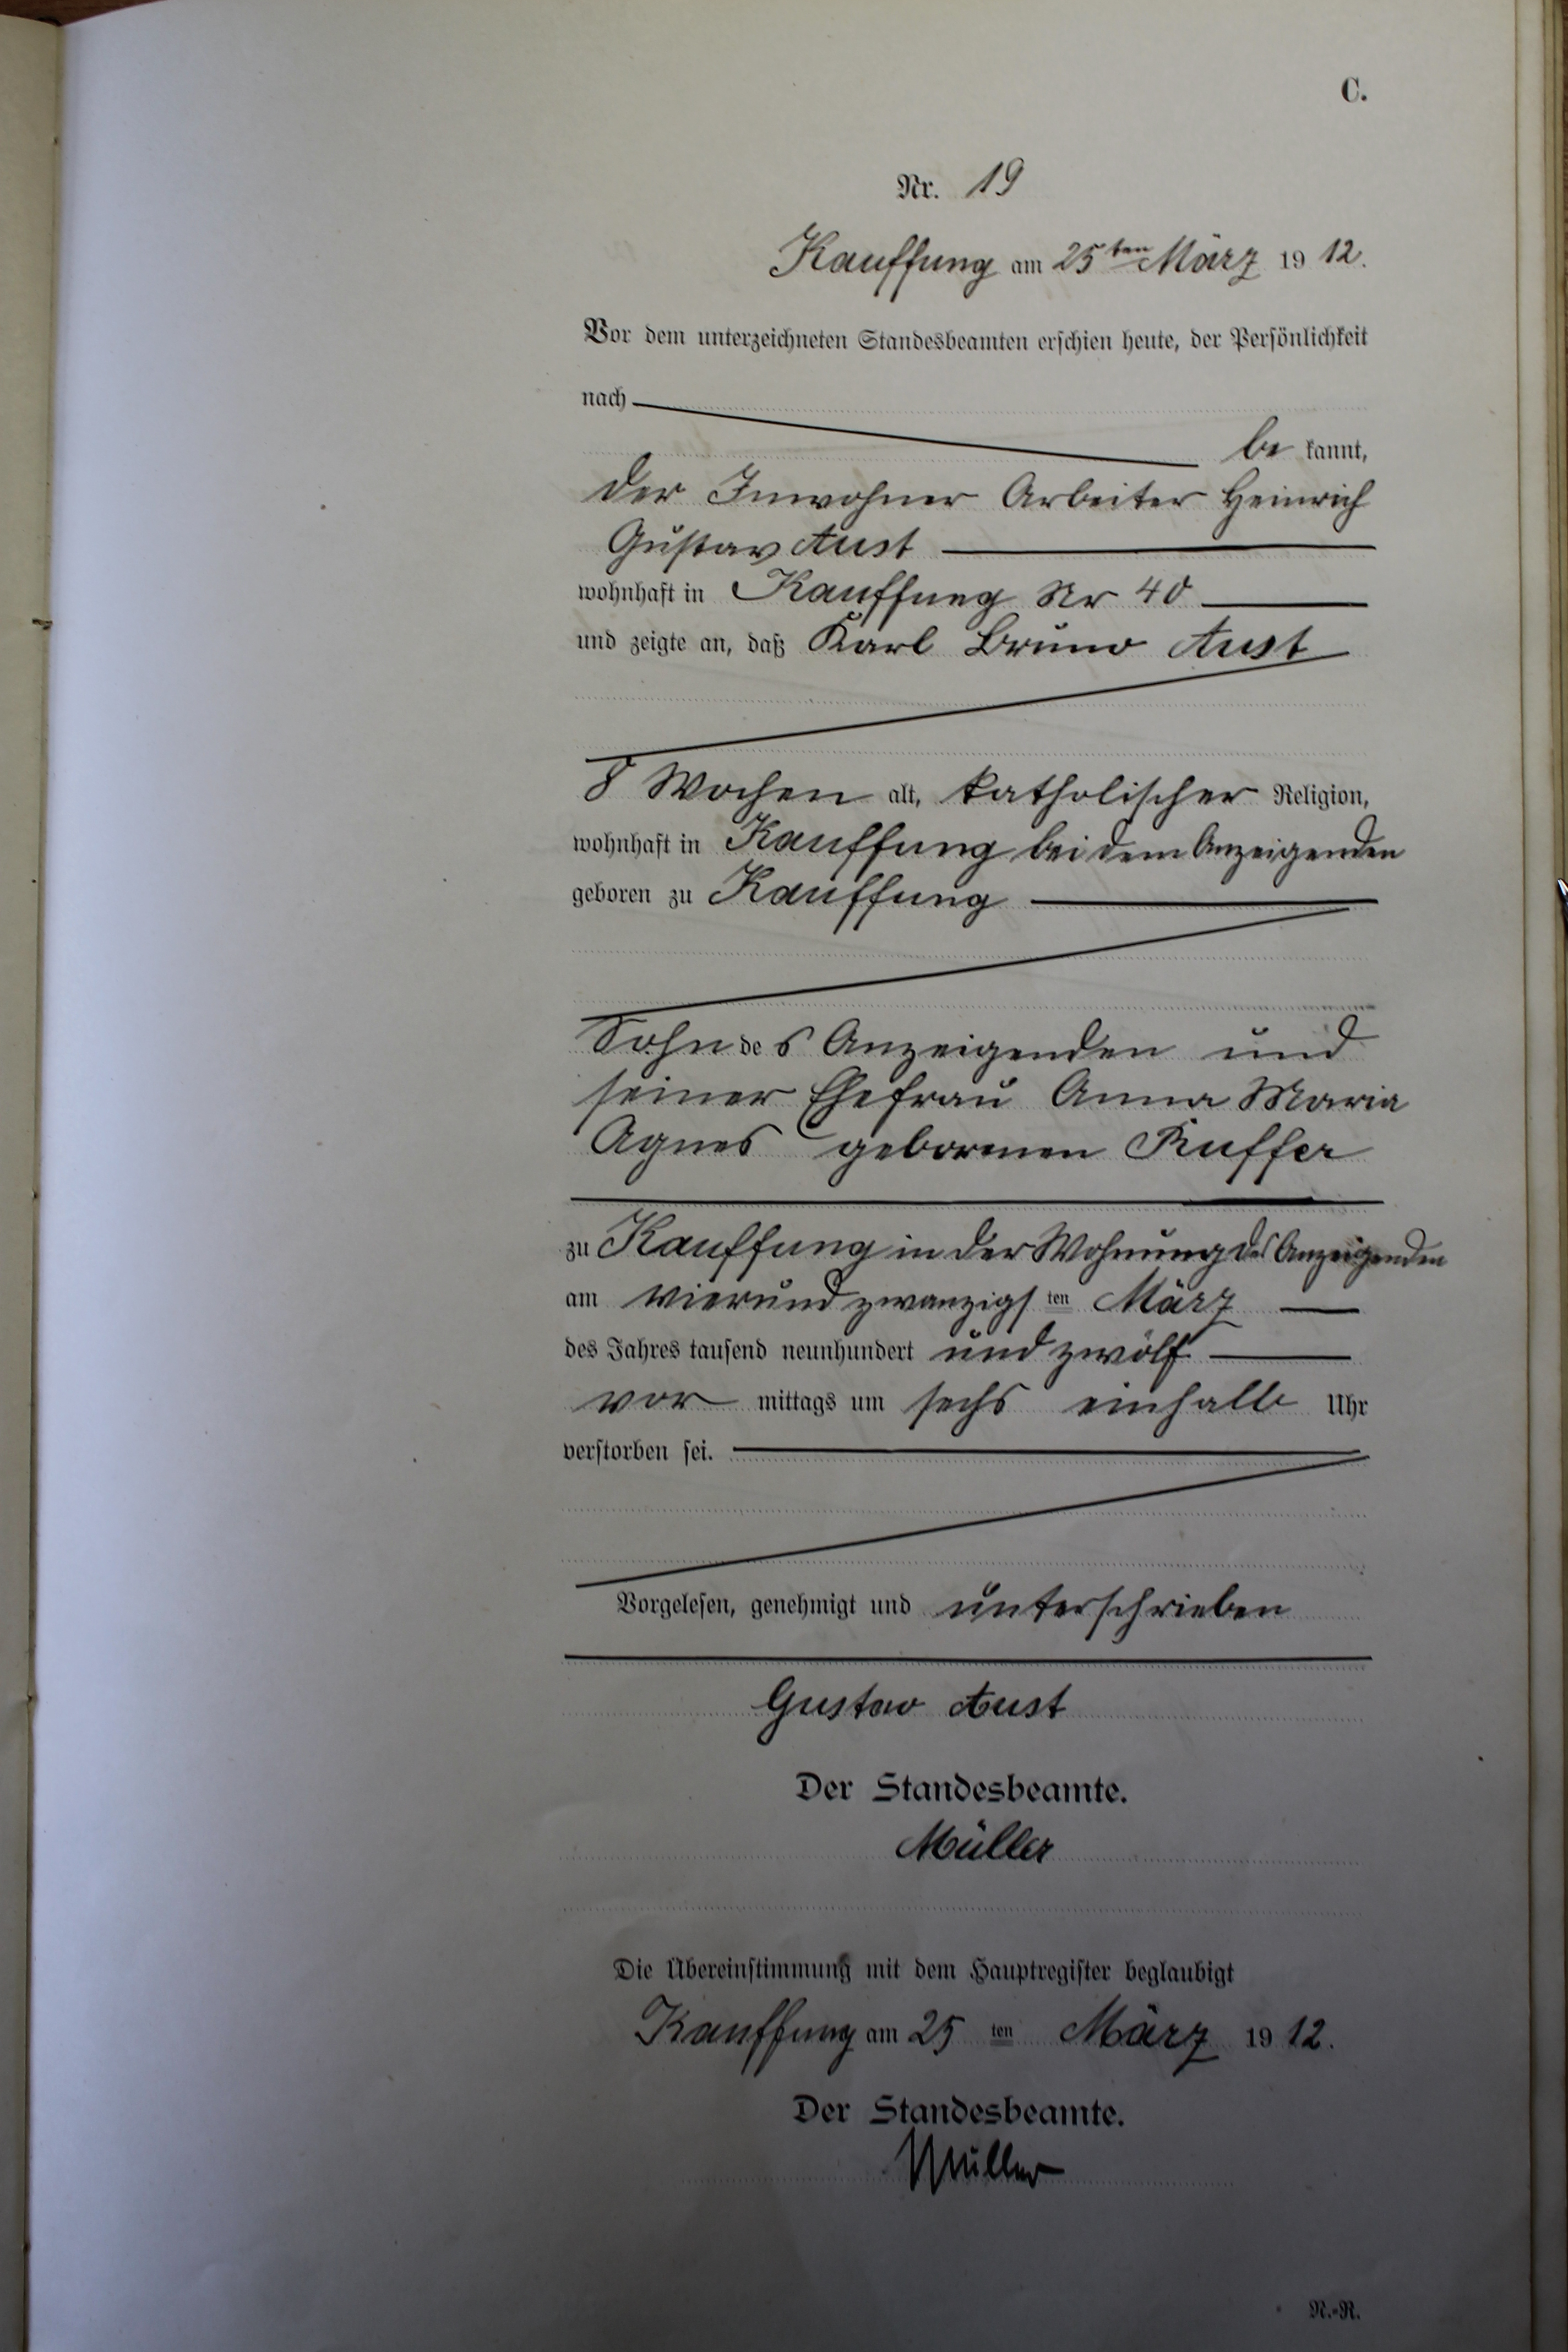 C.
Nr. 19
Kauffung am 25ten März 1912.
Vor dem unterzeichneten Standesbeamten erschien heute, der Persönlichkeit
nach
be kannt,
der Inwohner Arbeiter Heinrich
Gustav Aust
wohnhaft in Kauffung Nr 40
und zeigte an, daß Karl Bruno Aust
8 Wochen alt, katholischer Religion,
wohnhaft in Kauffung bei dem Anzeigenden
geboren zu Kauffung
Sohn des Anzeigenden und
seiner Ehefrau Anna Maria
Agnes geborenen Ruffer
zu Kauffung in der Wohnung des Anzeigenden
am vierundzwanzigsten März
des Jahres tausend neunhundert und zwölf
vor mittags um sechs einhalb Uhr
verstorben sei.
Vorgelesen, genehmigt und unterschrieben
Gustav Aust
Der Standesbeamte.
Müller
Die Übereinstimmung mit dem Hauptregister beglaubigt
Kauffung am 25 ten März 1912.
Der Standesbeamte.
Müller
N.-R.